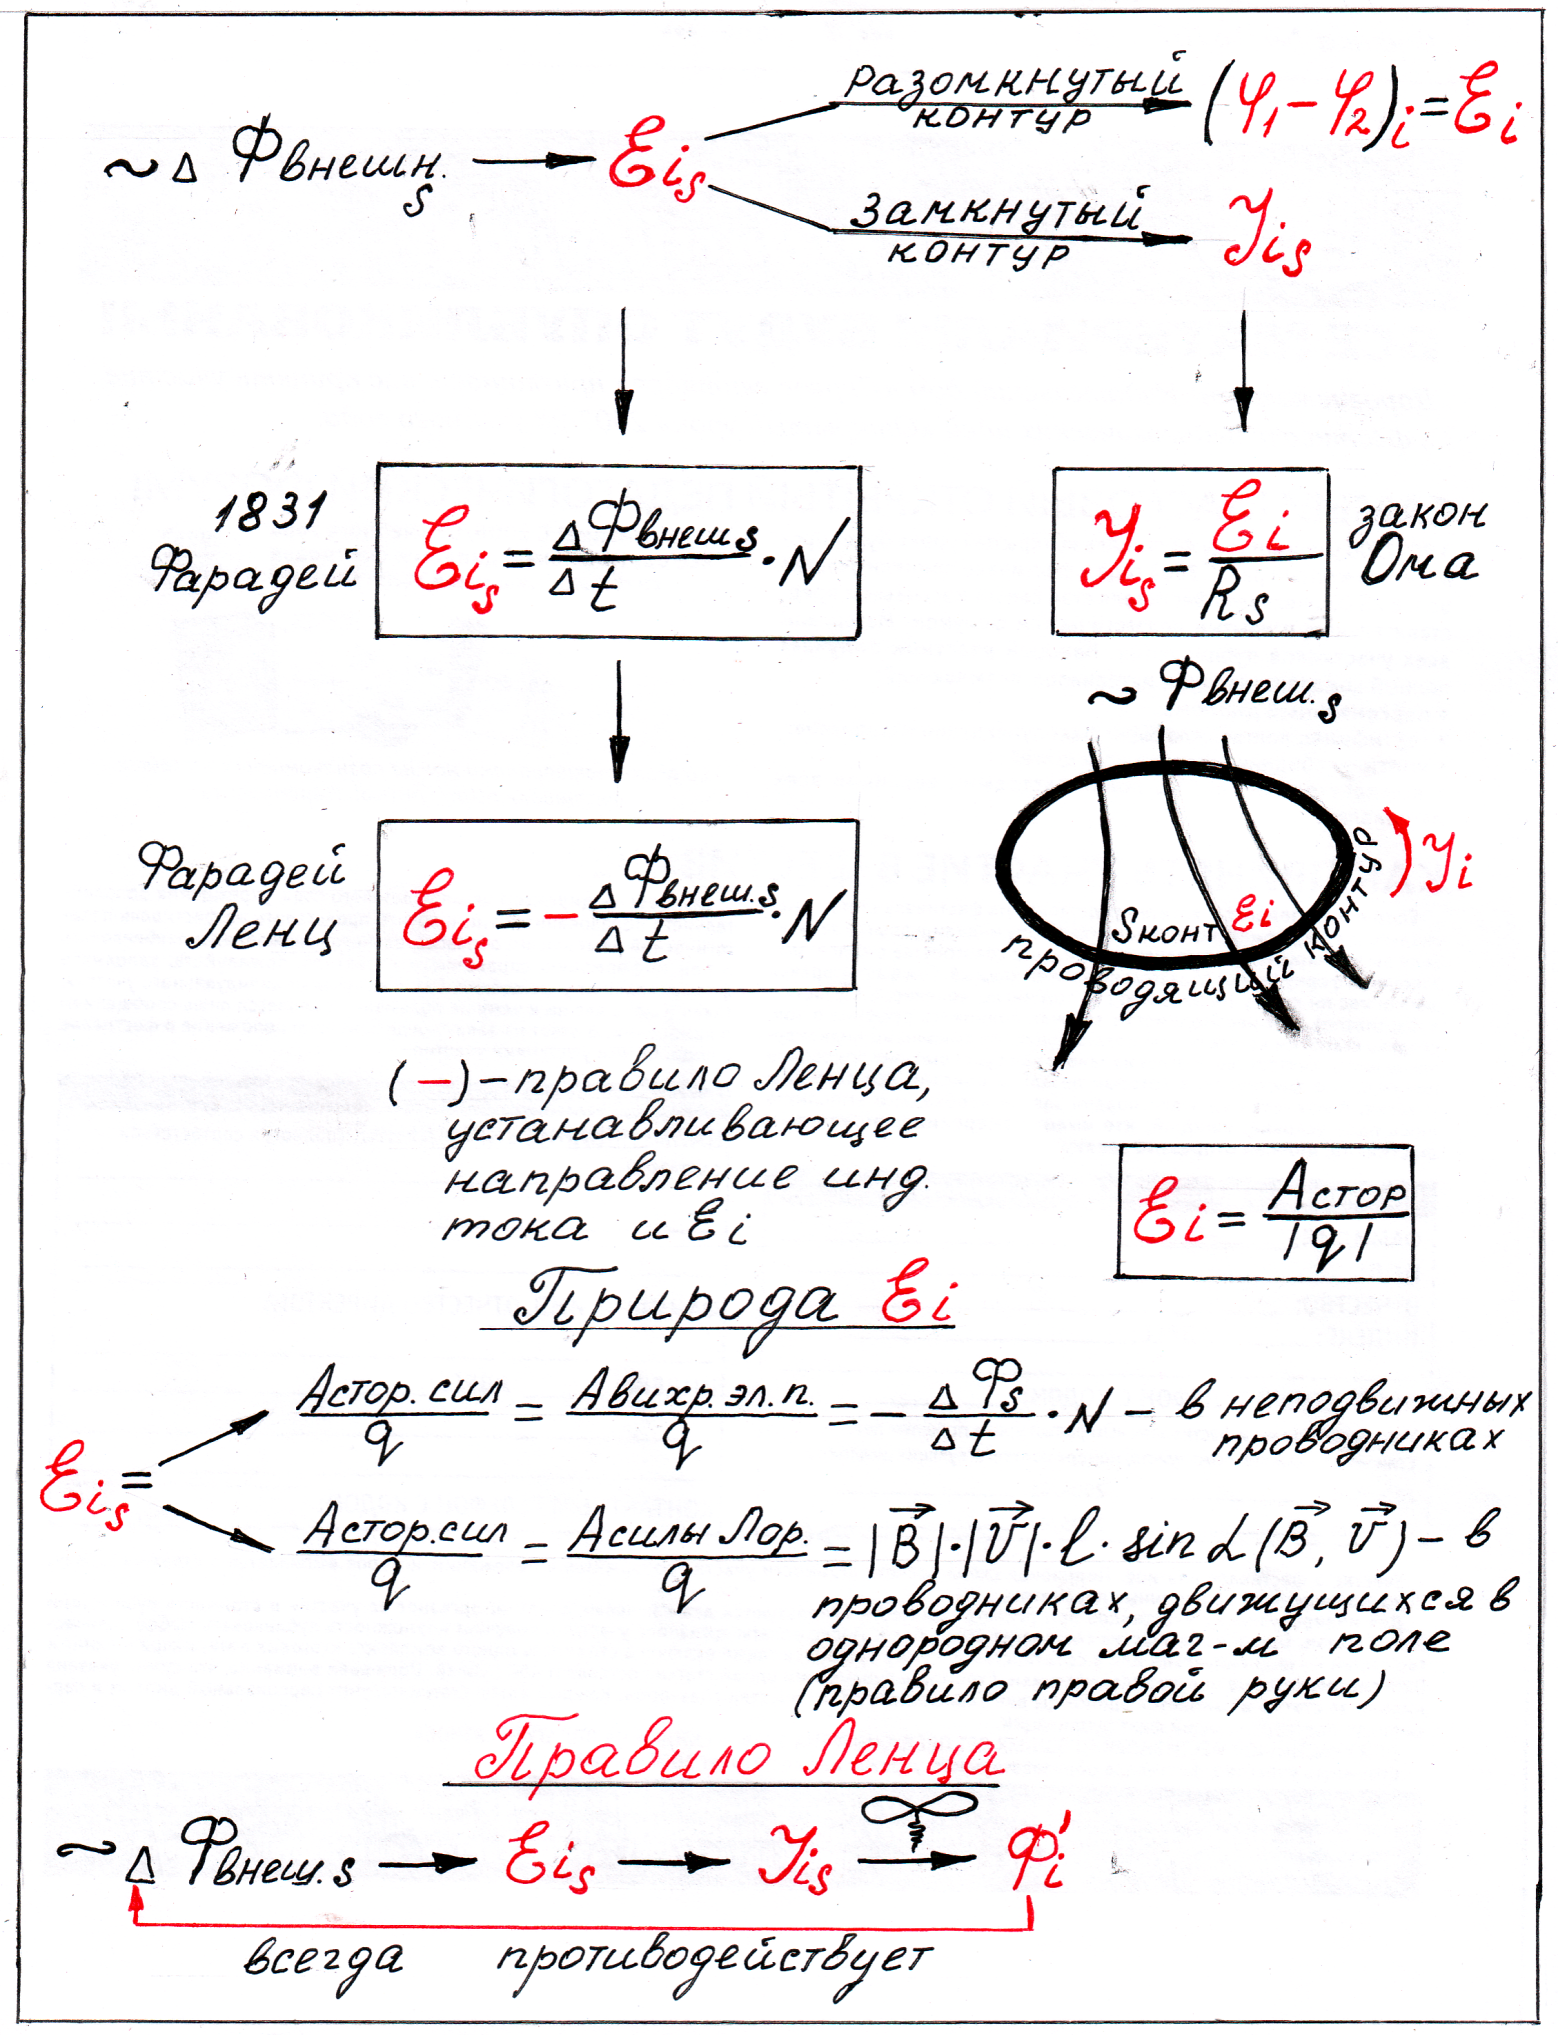 ~ Δ Φвнешн. s → Ɛi s
разомкнутый контур → (φ1 − φ2)i = Ɛi
замкнутый контур → Ji s
1831
Фарадей
Ɛi s = ΔФвнеш s / Δt · N
Ji s = Ɛi / Rs
закон
Ома
~ Фвнеш. s
Sконт Ɛi
Ji
проводящий контур
Фарадей
Ленц
Ɛi s = − ΔФвнеш. s / Δt · N
(−) – правило Ленца,
устанавливающее
направление инд.
тока и Ɛi
Ɛi = Aстор / |q|
Природа Ɛi
Ɛi s =
Aстор. сил / q = Aвихр. эл. п. / q = − ΔФs / Δt · N – в неподвижных
проводниках
Aстор. сил / q = Aсилы Лор. / q = |B⃗|·|V⃗|·ℓ· sin α (B⃗, V⃗) – в
проводниках, движущихся в
однородном маг-м поле
(правило правой руки)
Правило Ленца
~ Δ Фвнеш. s → Ɛi s → Ji s → Φ'i
всегда противодействует